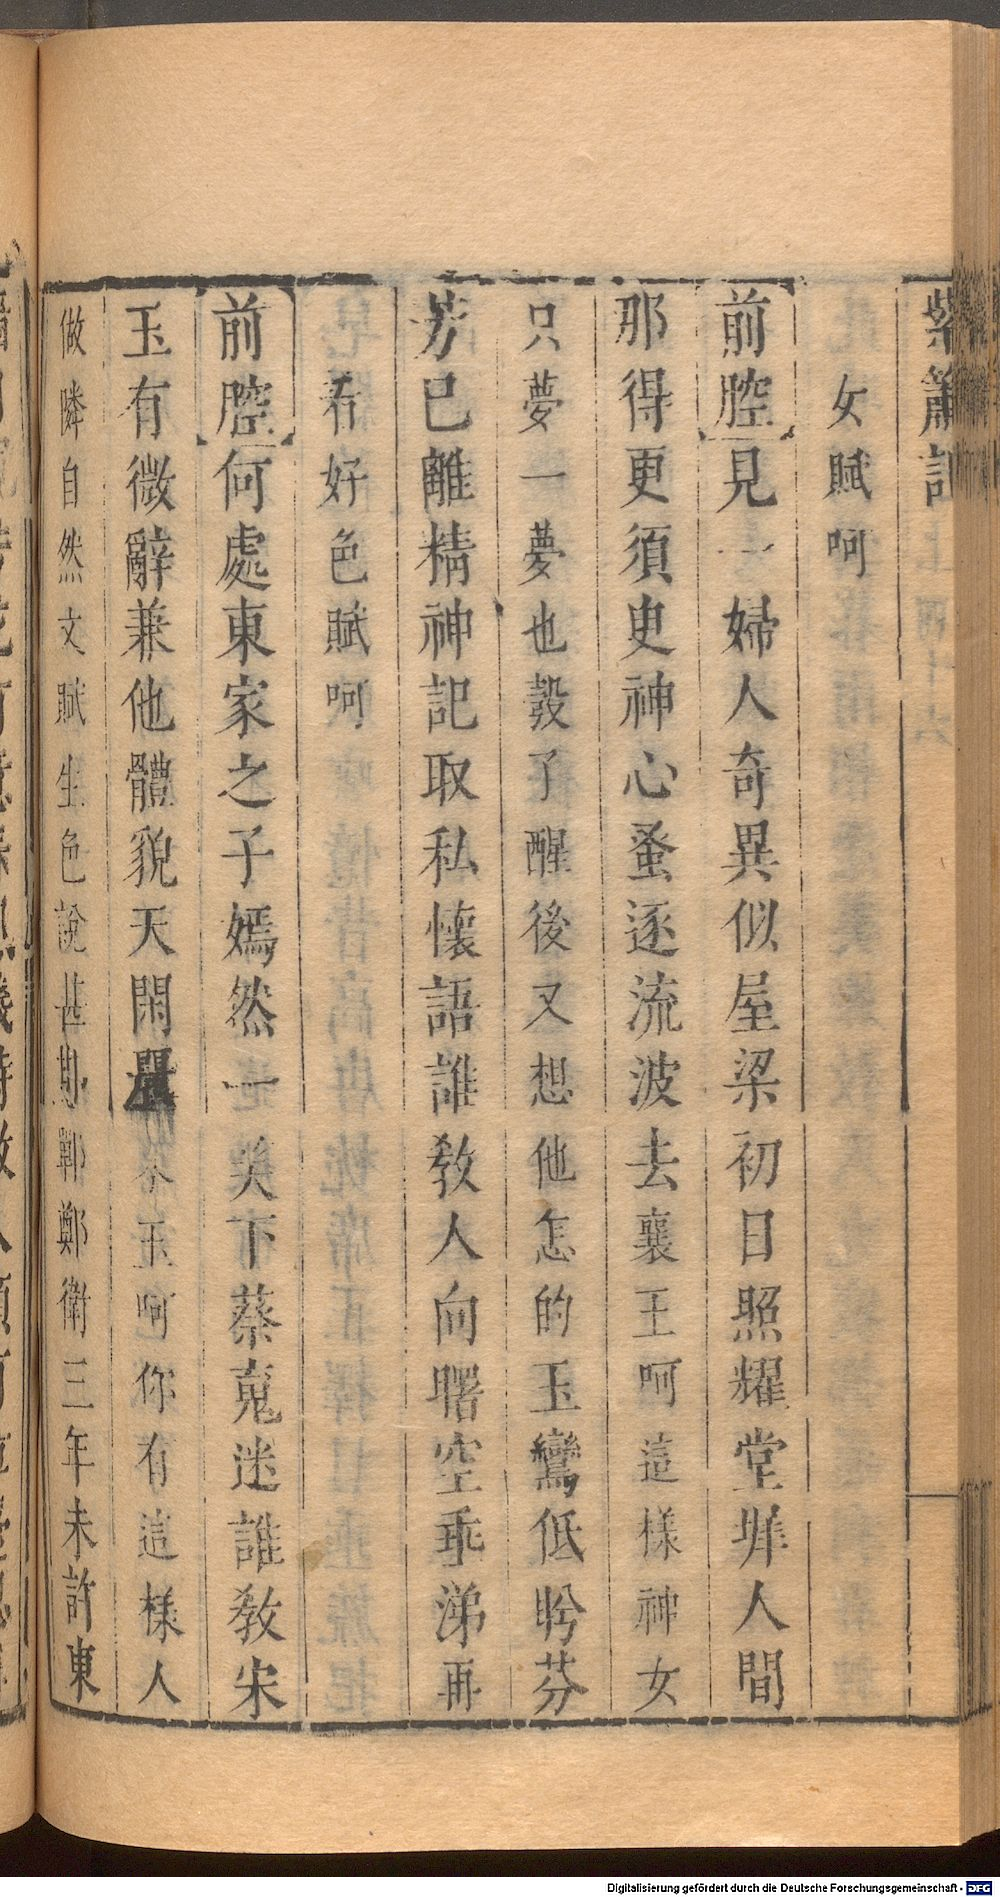 紫簫記
女賦呵
前腔見一婦人奇異似屋梁初日照耀堂堦人間
那得更須臾神心蚤逐流波去襄王呵這樣神女
只夢一夢也彀了醒後又想他怎的玉鸞低盻芬
芳已離精神記取私懷語誰教人向曙空垂涕再
看好色賦呵
前腔何處東家之子嫣然一笑下蔡䰟迷誰教宋
玉有微辭兼他體貌天閑麗宋玉呵你有這樣人
做隣自然文賦生色說甚鄭衛三年未許東
Digitalisierung gefördert durch die Deutsche Forschungsgemeinschaft - DFG